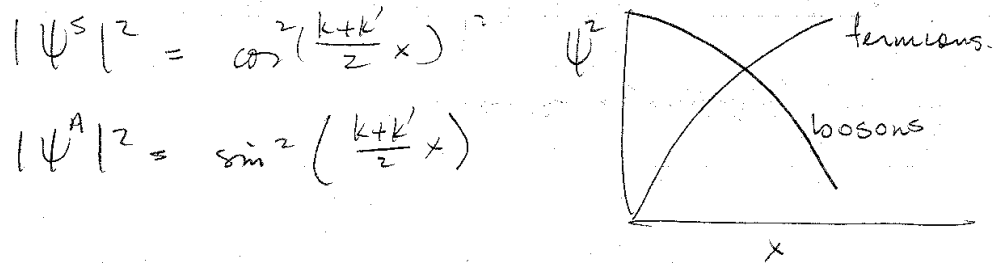 |ψ^S|² = cos²(\frac{k+k'}{2} x)
|ψ^A|² = sin²(\frac{k+k'}{2} x)
ψ²
fermions.
bosons
x